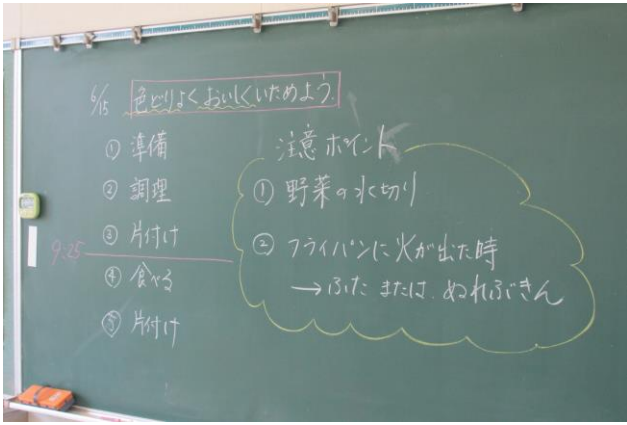 6/15 色どりよくおいしくいためよう。
① 準備
② 調理
③ 片付け
9:25
④ 食べる
⑤ 片付け
注意ポイント
① 野菜の水切り
② フライパンに火が出た時
→ ふた または、ぬれぶきん